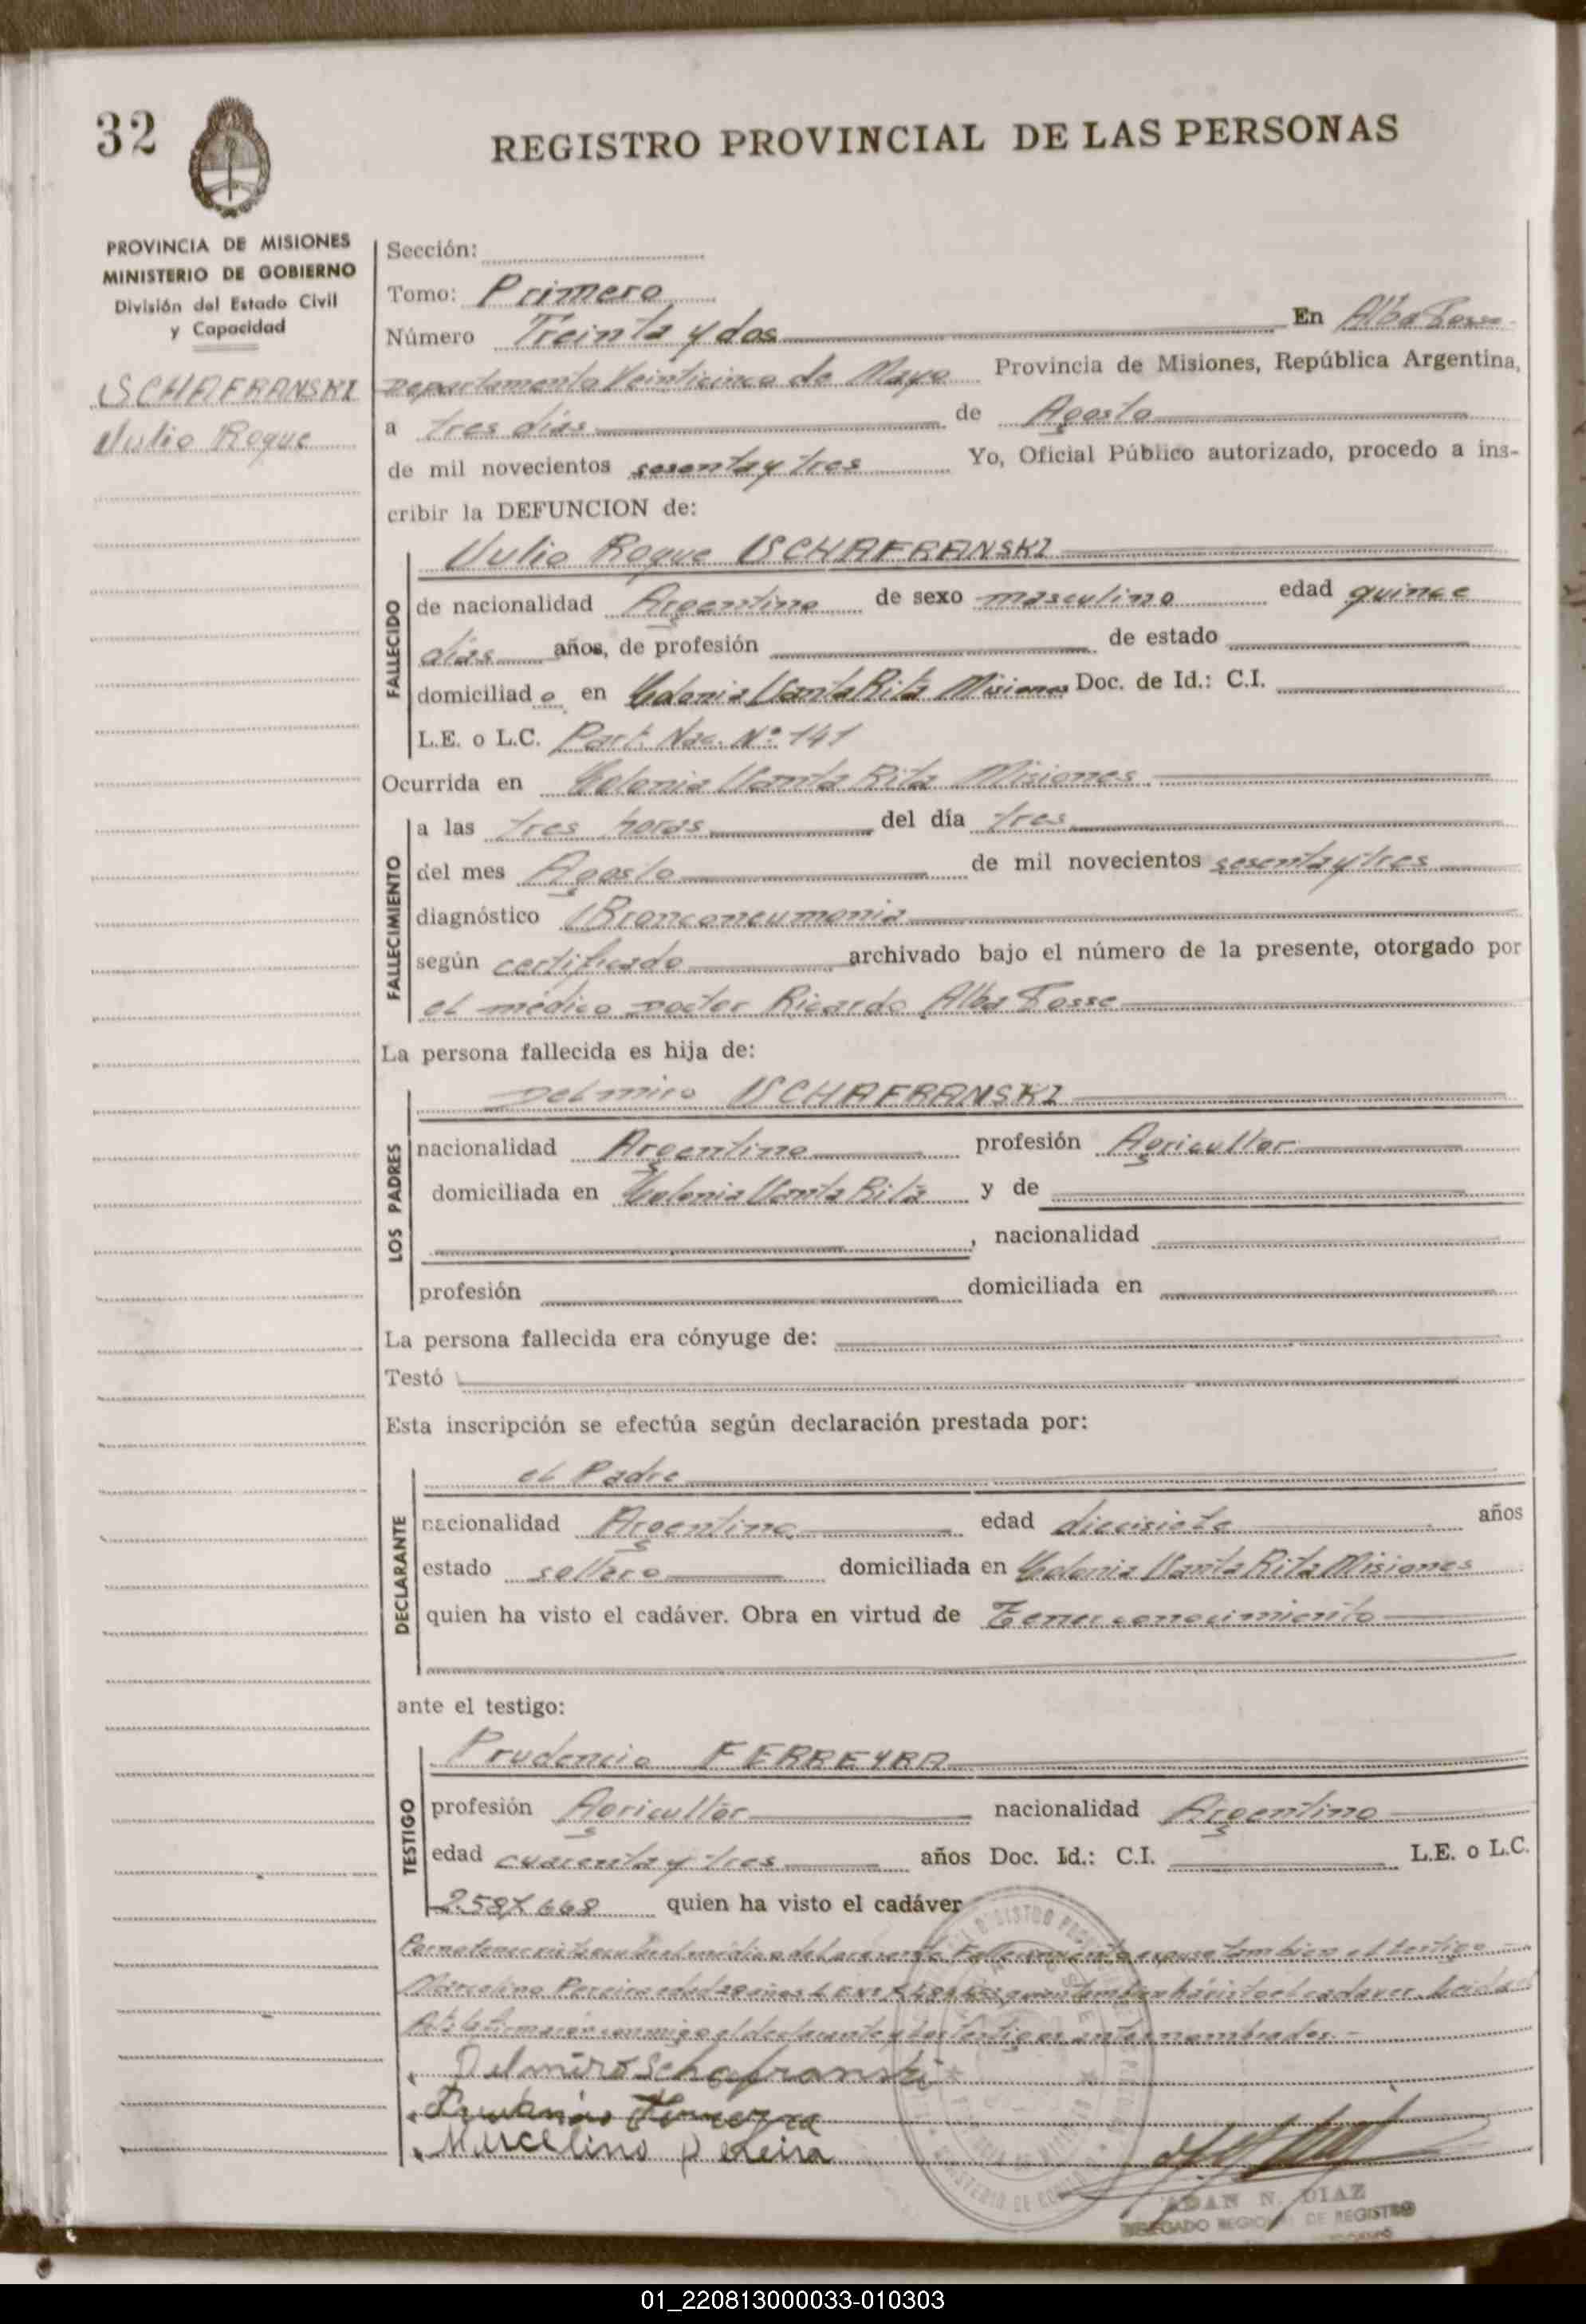 32
REGISTRO PROVINCIAL DE LAS PERSONAS
PROVINCIA DE MISIONES
MINISTERIO DE GOBIERNO
División del Estado Civil
y Capacidad
SCHAFRANSKI
Julio Roque
Sección:
Tomo: Primero
Número Treinta y dos En Alba Posse
Departamento Veinticinco de Mayo Provincia de Misiones, República Argentina,
a tres días de Agosto
de mil novecientos sesenta y tres Yo, Oficial Público autorizado, procedo a ins-
cribir la DEFUNCION de:
FALLECIDO
Julio Roque SCHAFRANSKI
de nacionalidad Argentino de sexo masculino edad quince
días años, de profesión de estado
domiciliad o en Colonia Santa Rita Misiones Doc. de Id.: C.I.
L.E. o L.C. Part. Nac. Nº 141
Ocurrida en Colonia Santa Rita Misiones
FALLECIMIENTO
a las tres horas del día tres
del mes Agosto de mil novecientos sesenta y tres
diagnóstico Bronconeumonia
según certificado archivado bajo el número de la presente, otorgado por
el médico Doctor Ricardo Alba Posse
La persona fallecida es hija de:
LOS PADRES
Delmiro SCHAFRANSKI
nacionalidad Argentino profesión Agricultor
domiciliada en Colonia Santa Rita y de
, nacionalidad
profesión domiciliada en
La persona fallecida era cónyuge de:
Testó
Esta inscripción se efectúa según declaración prestada por:
DECLARANTE
el Padre
nacionalidad Argentino edad diecisiete años
estado soltero domiciliada en Colonia Santa Rita Misiones
quien ha visto el cadáver. Obra en virtud de Tener conocimiento
ante el testigo:
TESTIGO
Prudencio FERREYRA
profesión Agricultor nacionalidad Argentino
edad cuarenta y tres años Doc. Id.: C.I. L.E. o L.C.
2.587.668 quien ha visto el cadáver
Por no tener visto el médico del presente Fallecimiento expuso tambien el testigo
Marcelino Pereira edad años L.E. Nº quien tambien há visto el cadaver. Leida el
Acta la firmarón conmigo el declarante y los testigos antes nombrados.-
Delmiro Schafranski
Prudencio Ferreyra
Marcelino Pereira
ADAN N. DIAZ
DELEGADO REGIONAL DE REGISTRO
01_220813000033-010303